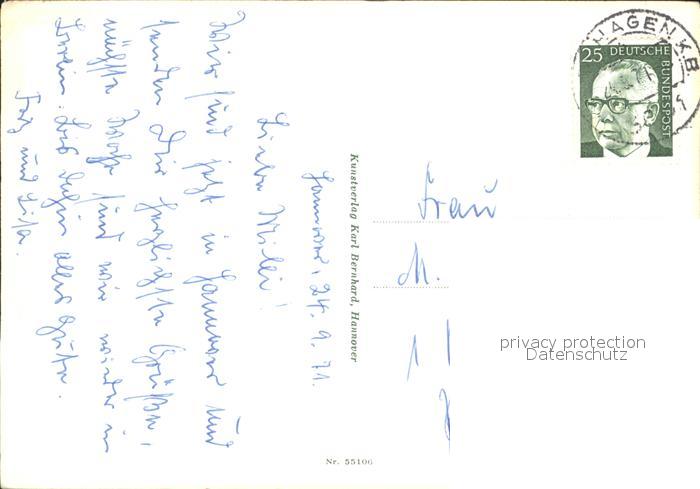 Hannover, 24.9.71.
Liebe Milli!
Wir sind jetzt in Hannover und
senden Dir herzlichste Grüße,
nächste Woche sind wir wieder in
Berlin. Bis dahin alles Gute.
und
Kunstverlag Karl Bernhard, Hannover
Nr. 55106
HAGEN KB
25 DEUTSCHE
BUNDESPOST
Frau
M.
privacy protection
Datenschutz